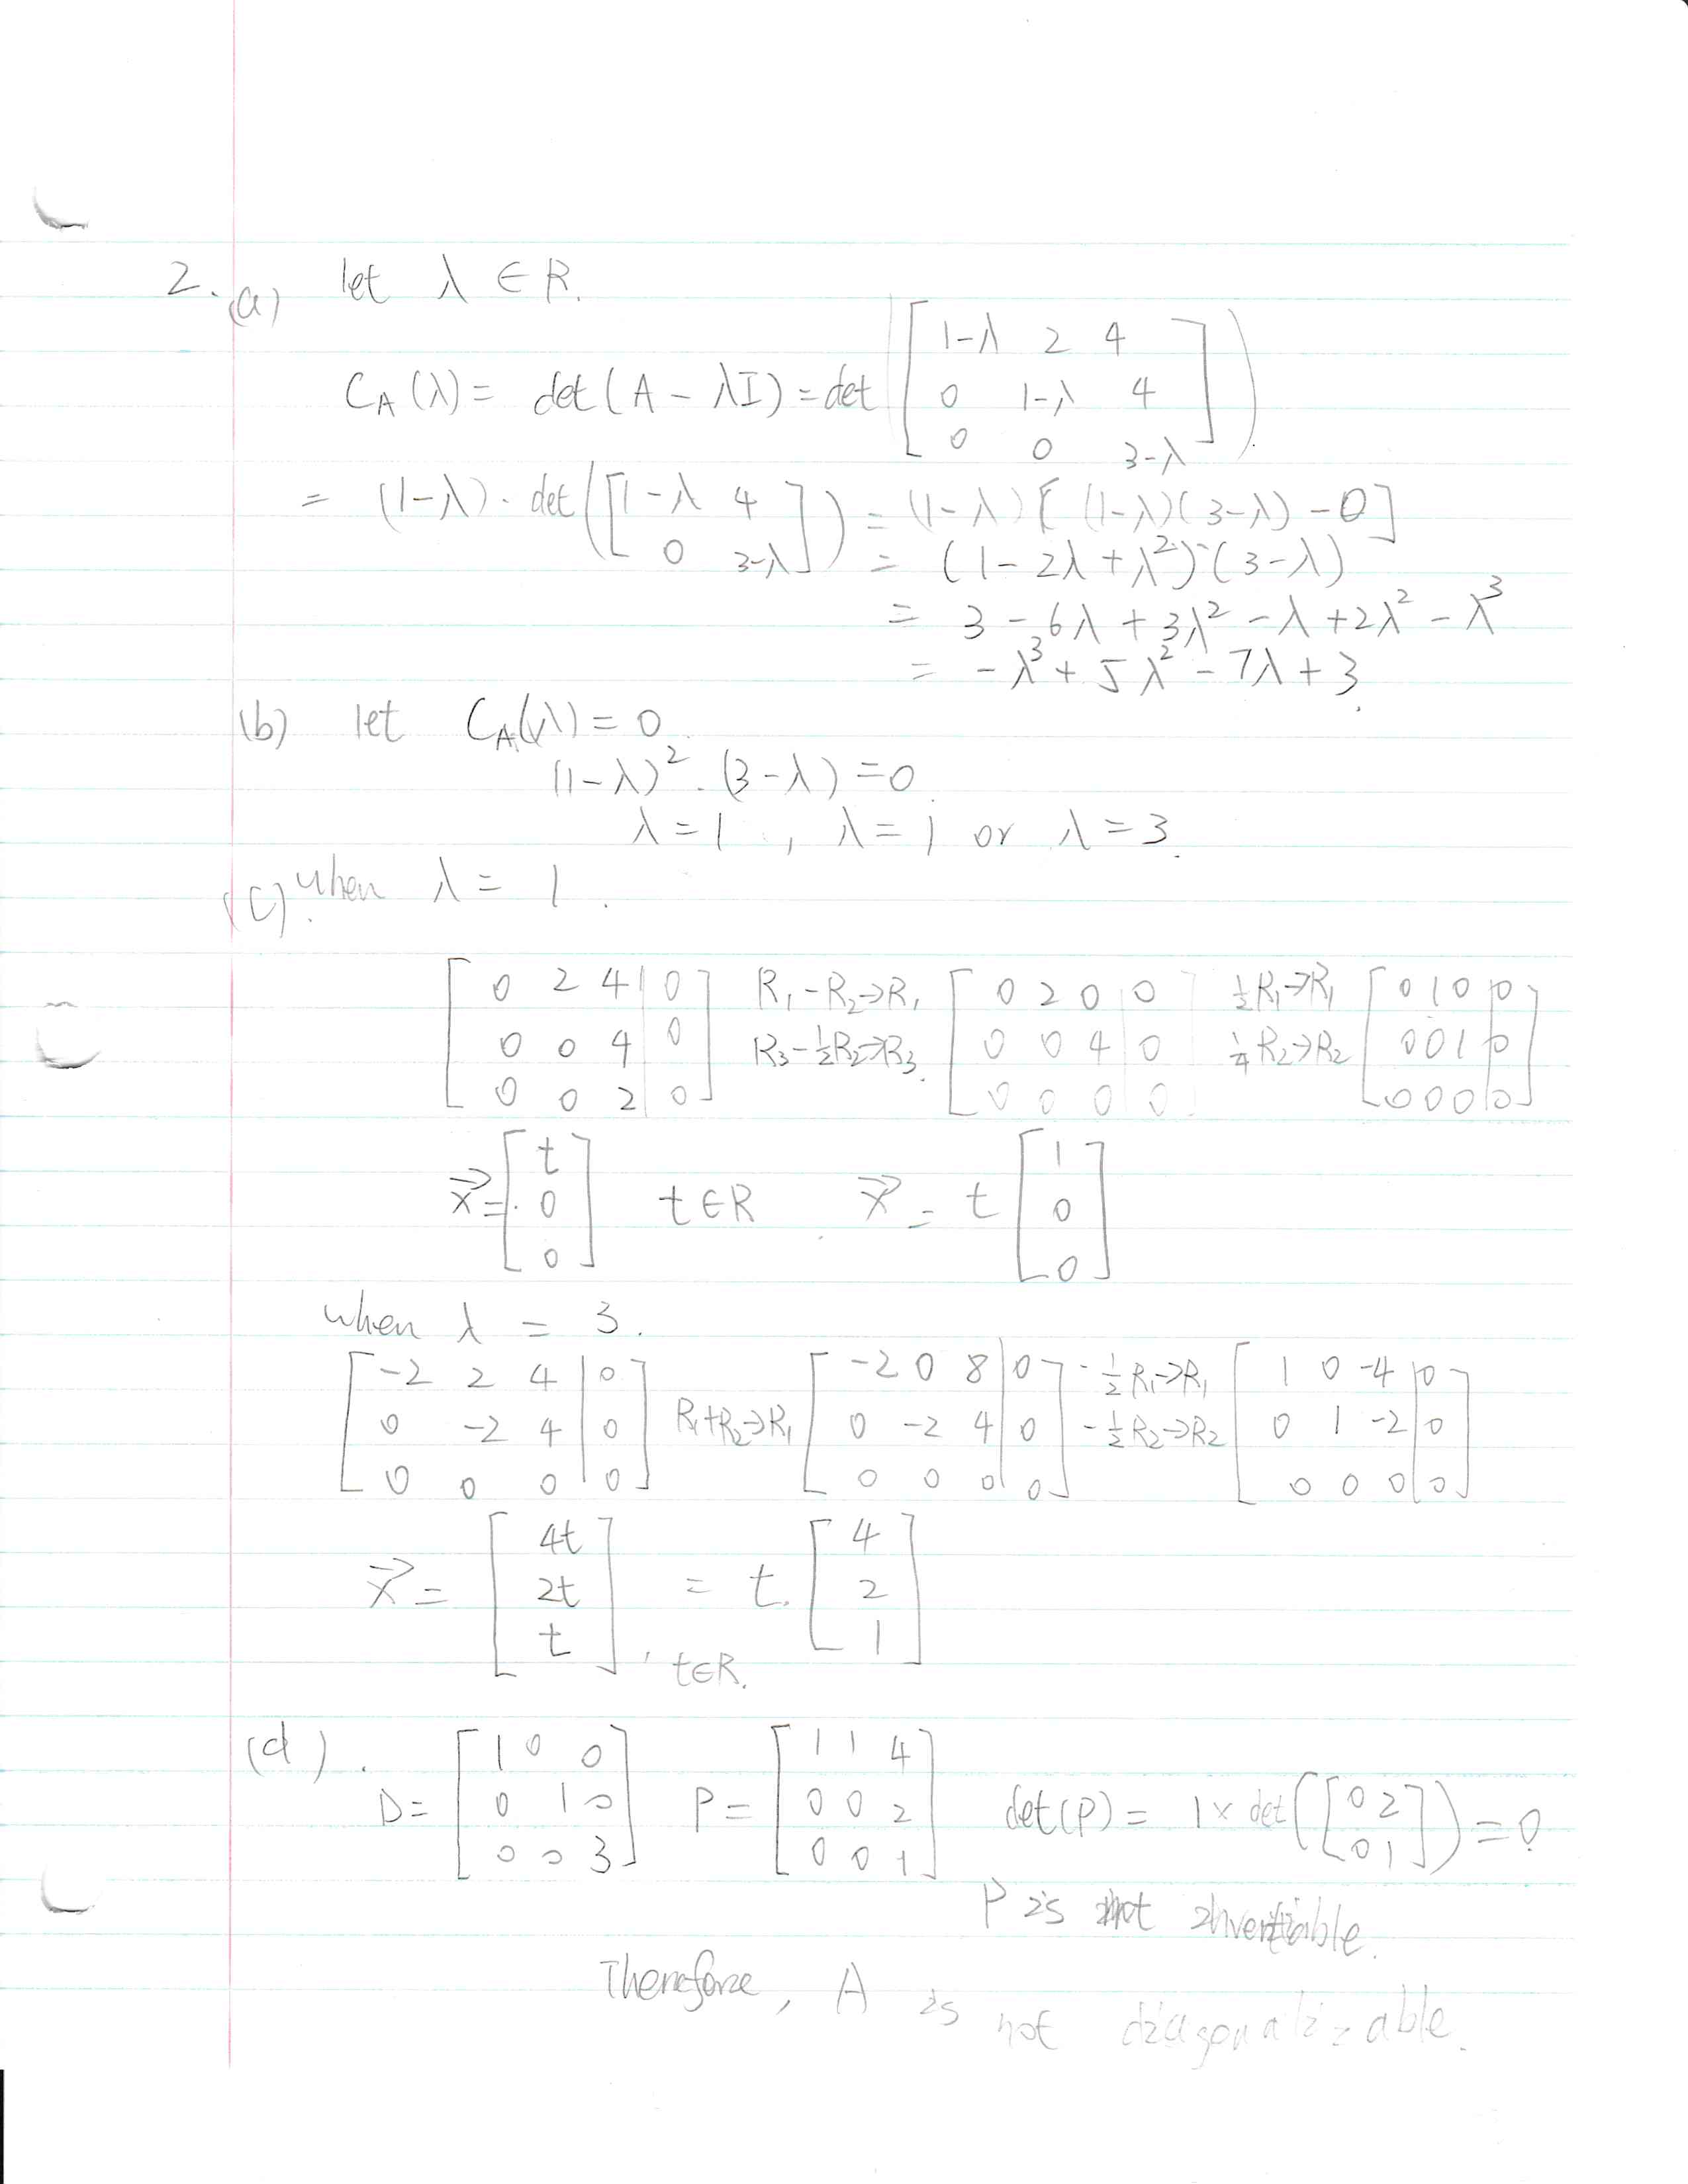 2. (a) let λ ∈ R.
C_A(λ) = det(A - λI) = det([1-λ 2 4; 0 1-λ 4; 0 0 3-λ]).
= (1-λ) · det([1-λ 4; 0 3-λ]) = (1-λ)[(1-λ)(3-λ) - 0]
= (1-2λ+λ²)·(3-λ)
= 3 - 6λ + 3λ² - λ + 2λ² - λ³
= -λ³ + 5λ² - 7λ + 3.
(b) let C_A(λ) = 0.
(1-λ)² · (3-λ) = 0.
λ = 1, λ = 1 or λ = 3.
(c). when λ = 1.
[0 2 4 | 0; 0 0 4 | 0; 0 0 2 | 0] R₁-R₂→R₁ R₃-½R₂→R₃. [0 2 0 | 0; 0 0 4 | 0; 0 0 0 | 0] ½R₁→R₁ ¼R₂→R₂ [0 1 0 | 0; 0 0 1 | 0; 0 0 0 | 0]
x⃗ = [t; 0; 0] t∈R x⃗ = t [1; 0; 0]
when λ = 3.
[-2 2 4 | 0; 0 -2 4 | 0; 0 0 0 | 0] R₁+R₂→R₁ [-2 0 8 | 0; 0 -2 4 | 0; 0 0 0 | 0] -½R₁→R₁ -½R₂→R₂ [1 0 -4 | 0; 0 1 -2 | 0; 0 0 0 | 0]
x⃗ = [4t; 2t; t] = t. [4; 2; 1], t∈R.
(d). D = [1 0 0; 0 1 0; 0 0 3] P = [1 1 4; 0 0 2; 0 0 1] det(P) = 1 × det([0 2; 0 1]) = 0
P is not invertible.
Therefore, A is not diagonalizable.